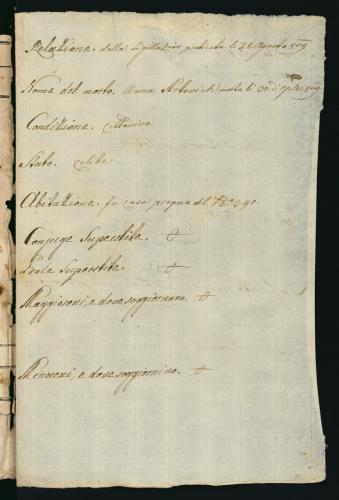 Relazione. della Sigillazion praticata li 28 Agosto 809
Nome del morto. Anna morta li 30 d'
Condizione. cittadina
Stato. celibe
Abitazione. in casa propria al N.o 390.
Conjuge Superstite. 0
Prole Superstite. 0
Maggioreni, e dove soggiornano. 0
Minoreni, e dove soggiornino. 0